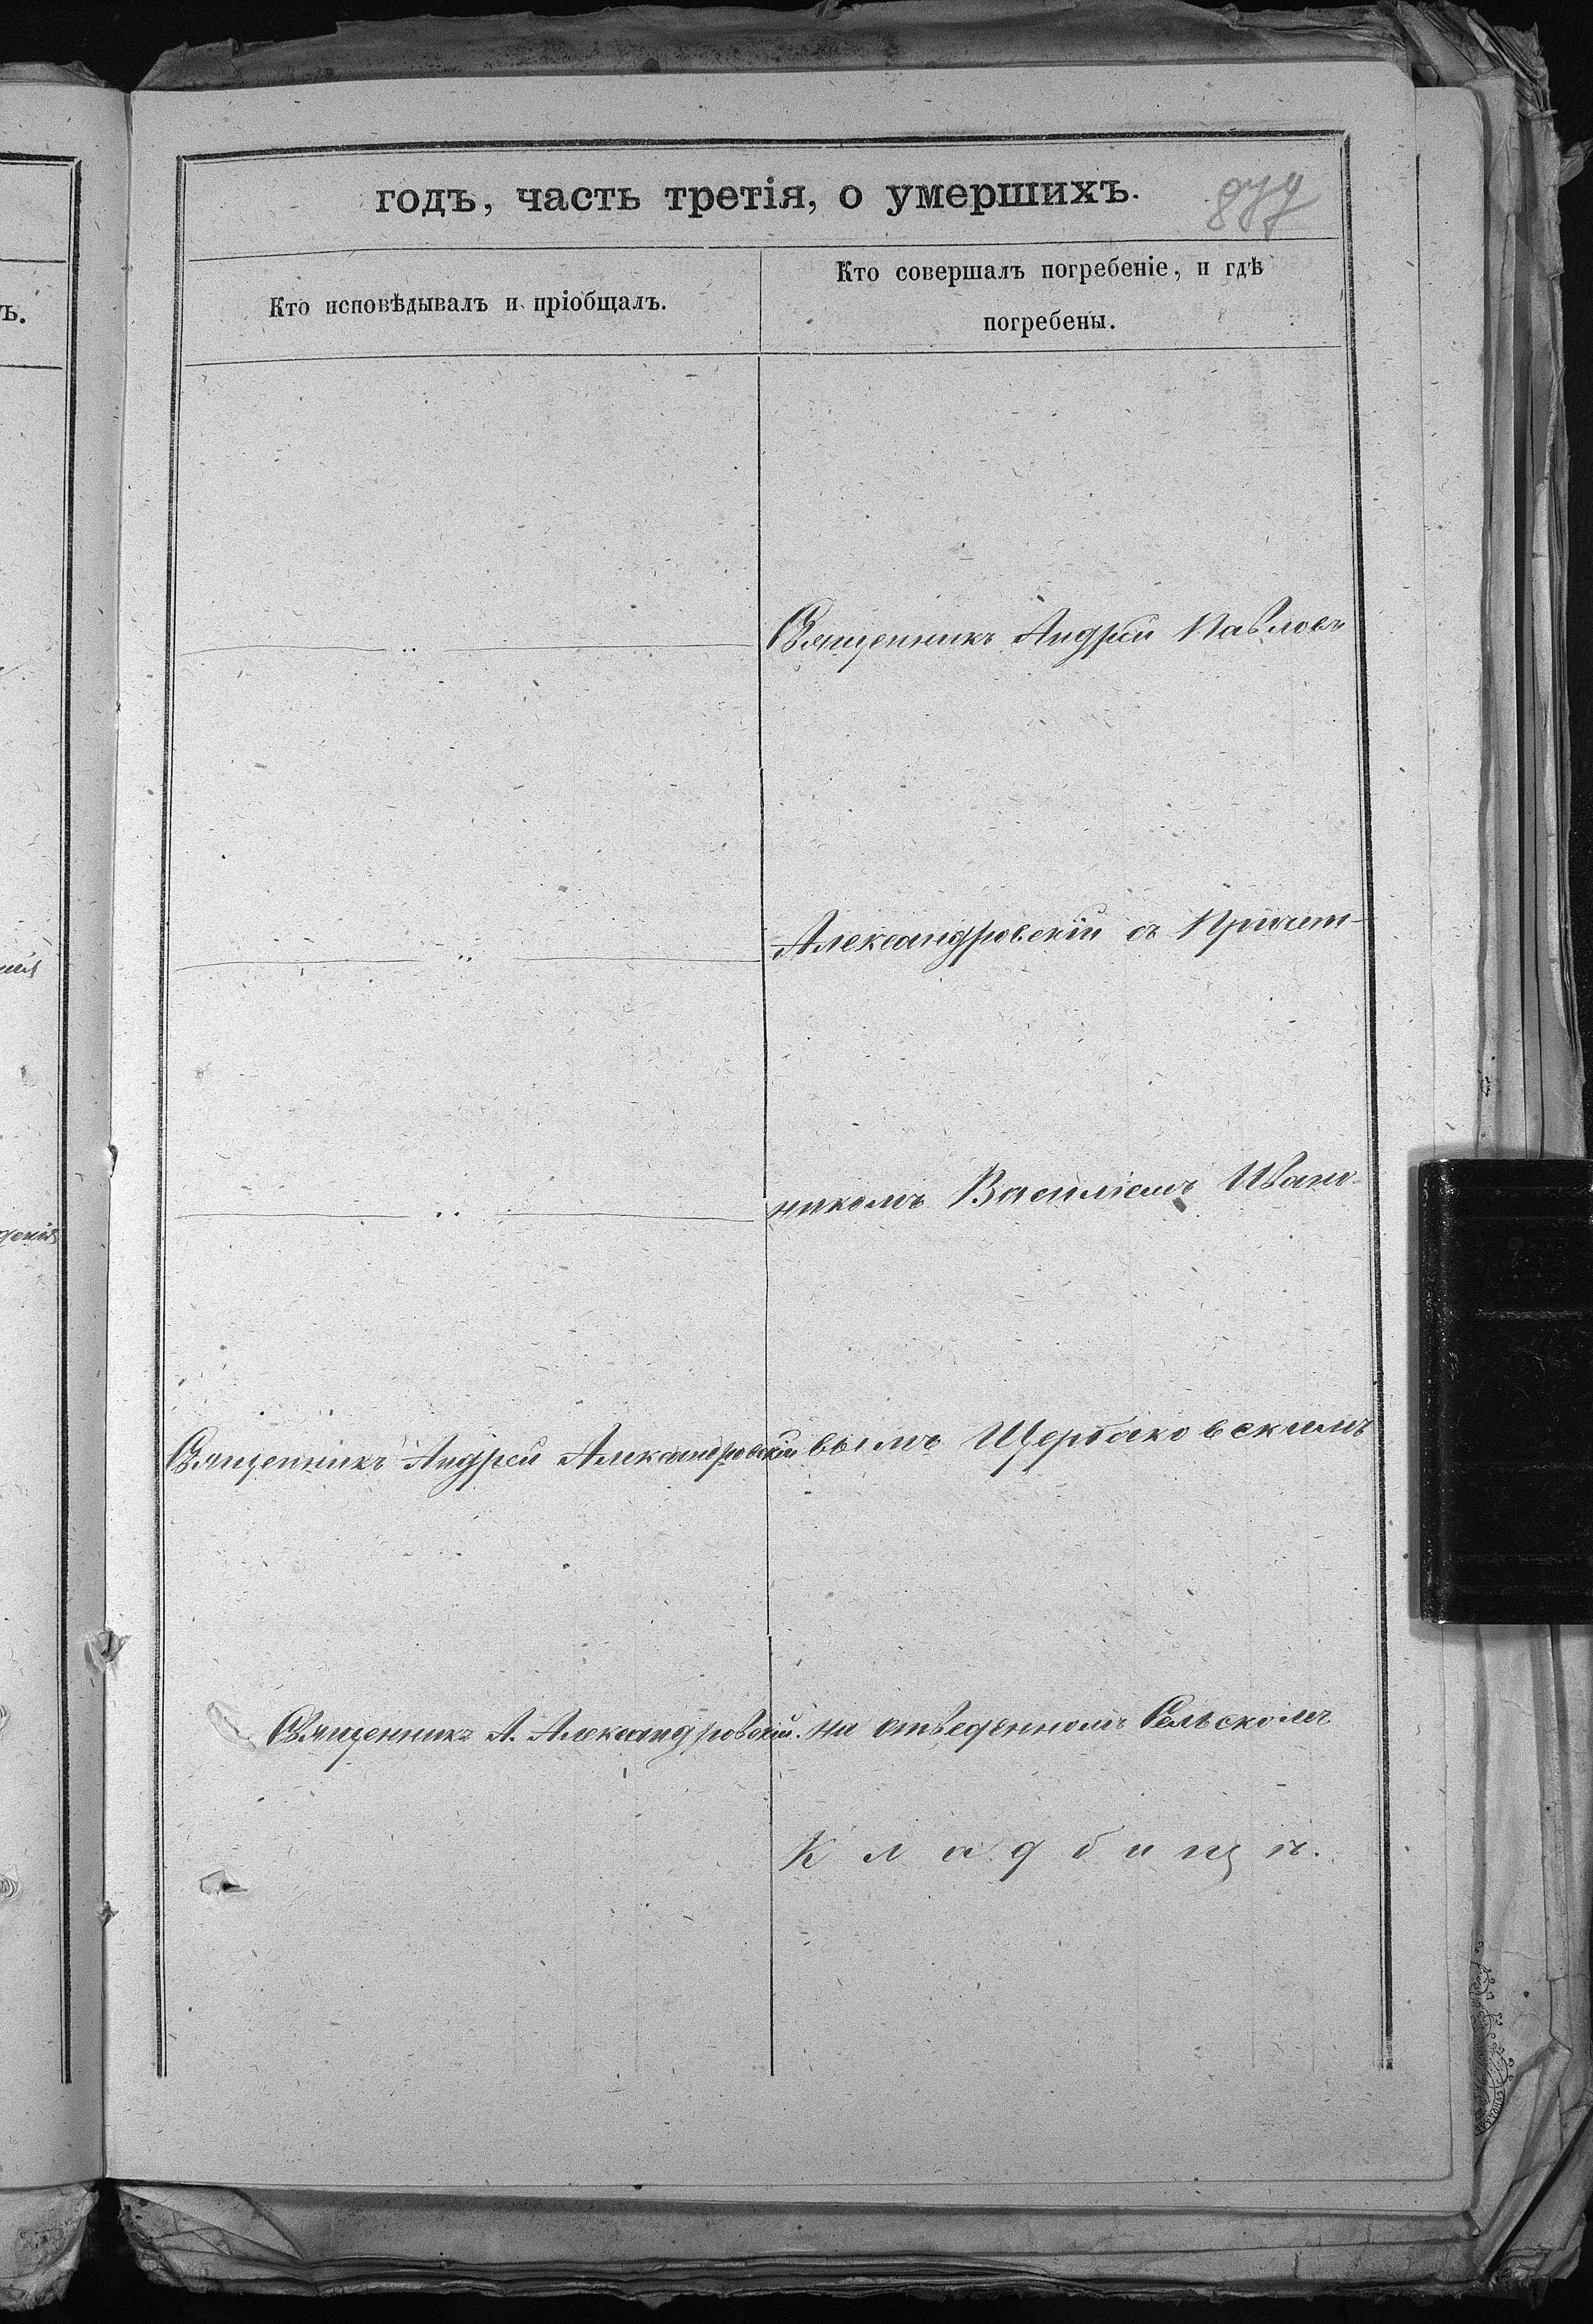 годъ, часть третія, о умершихъ.
Кто исповѣдывалъ и пріобщалъ.
Кто совершалъ погребеніе, и гдѣ
погребены.
Священникъ Андрей Павловъ
Александровскій съ Причет-
никомъ Василіемъ Ивано-
Священникъ Андрей Александровскій
вымъ Щербаковскимъ
Священникъ А. Александровскій.
на отведенномъ Сельскомъ
Кладбищѣ.